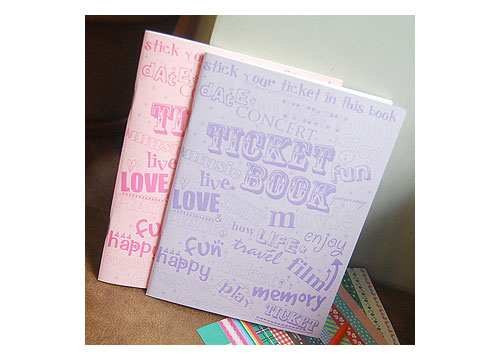 stick your
date
live
LOVE
fun
happy
stick your ticket in this book
date
CONCERT
TICKET
music
fun
live
BOOK
LOVE
&
m
how
LIFE
enjoy
fun
travel
happy
film
play
memory
TICKET